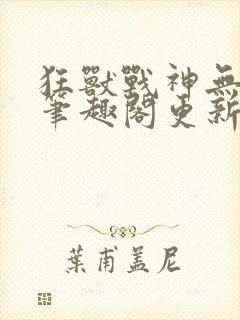 狂獸戰神無
筆趣閣更新
葉甫蓋尼